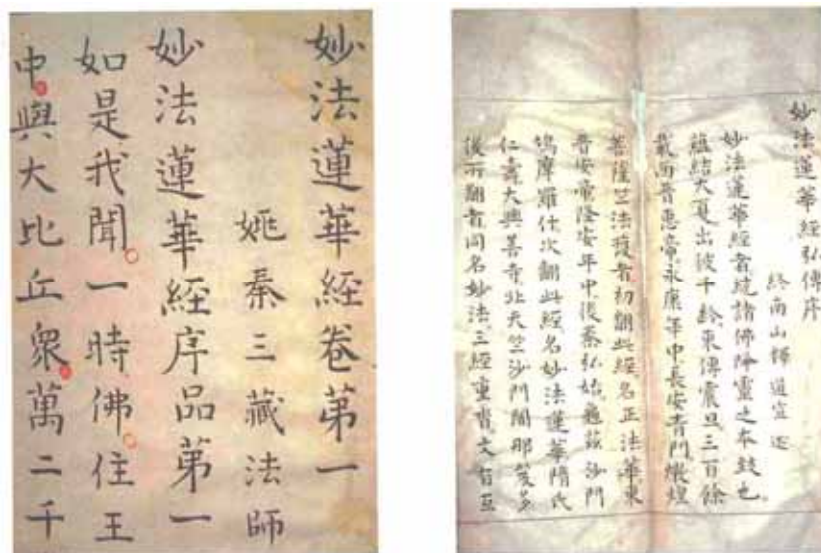 妙法蓮華經卷第一
姚秦三藏法師
妙法蓮華經序品第一
如是我聞一時佛住王
中與大比丘眾萬二千
妙法蓮華經弘傳序
終南山釋道宣述
妙法蓮華經者統諸佛降靈之本致也
蘊結大夏出彼千齡東傳震旦三百餘
載西晉惠帝永康年中長安青門燉煌
菩薩竺法護者初翻此經名正法華東
晉安帝隆安年中後秦弘始龜茲沙門
鳩摩羅什次翻此經名妙法蓮華隋氏
仁壽大興善寺北天竺沙門闍那笈多
後所翻者同名妙法三經重沓文旨互